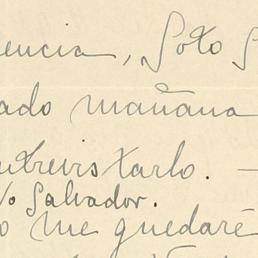 encia, Soto S
ado mañana
ntrevistarlo. —
% Salvador.
o me quedaré